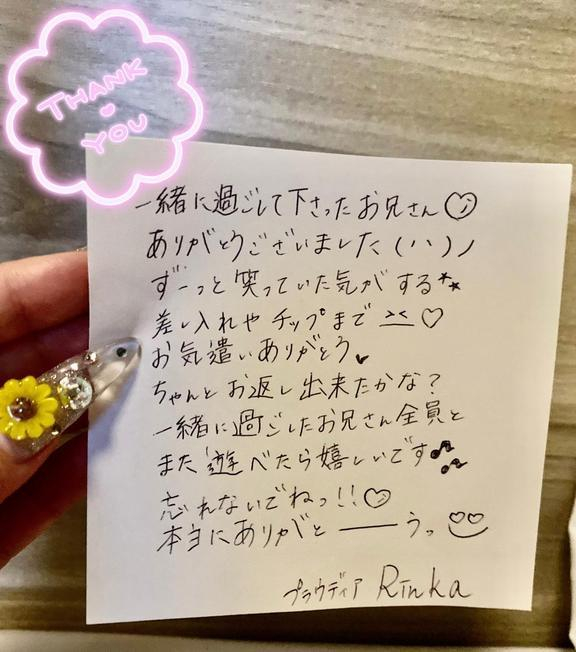 THANK
YOU
一緒に過ごして下さったお兄さん♡
ありがとうございました(ハ)ノ
ずーっと笑っていた気がする**
差し入れやチップまで >< ♡
お気遣いありがとう
ちゃんとお返し出来たかな？
一緒に過ごしたお兄さん全員と
また遊べたら嬉しいです♫♫
忘れないでねっ!!♡
本当にありがと――うっ
プラウディア Rinka